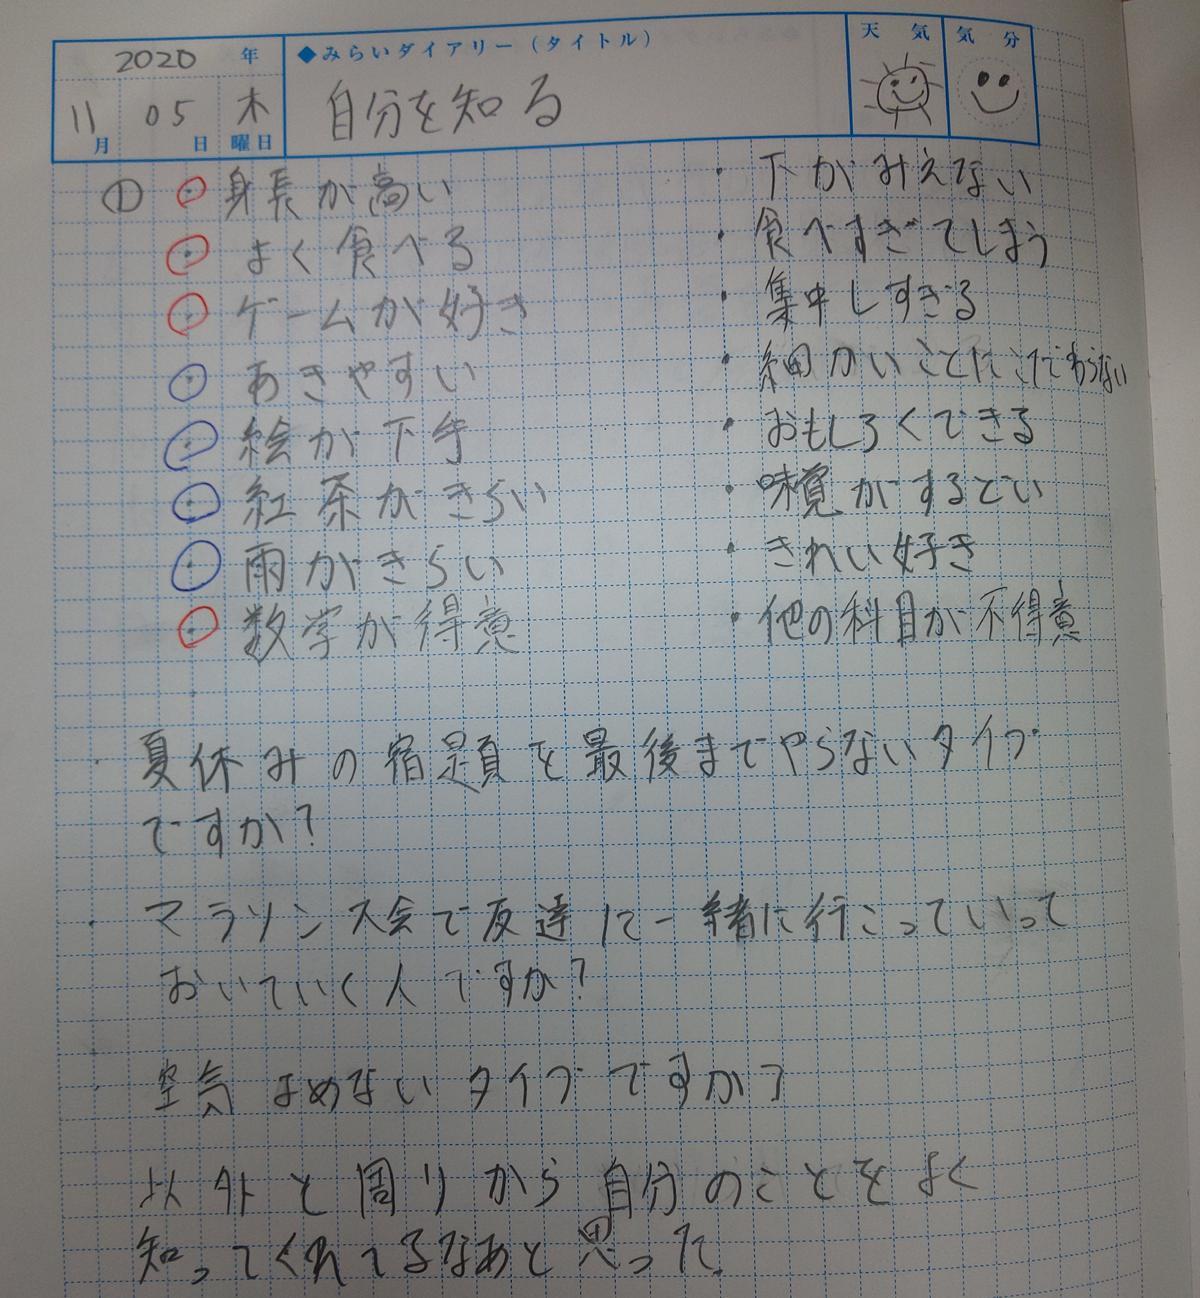 2020 年 ◆みらいダイアリー(タイトル) 天気 気分
11月 05日 木曜日 自分を知る
① ・身長が高い ・下がみえない
・よく食べる ・食べすぎてしまう
・ゲームが好き ・集中しすぎる
・あきやすい ・細かいことにこだわらない
・絵が下手 ・おもしろくできる
・紅茶がきらい ・味覚がするどい
・雨がきらい ・きれい好き
・数学が得意 ・他の科目が不得意
・夏休みの宿題を最後までやらないタイプ
ですか?
・マラソン大会で友達に一緒に行こっていって
おいていく人ですか?
・空気よめないタイプですか?
以外と周りから自分のことをよく
知ってくれてるなあと思った。